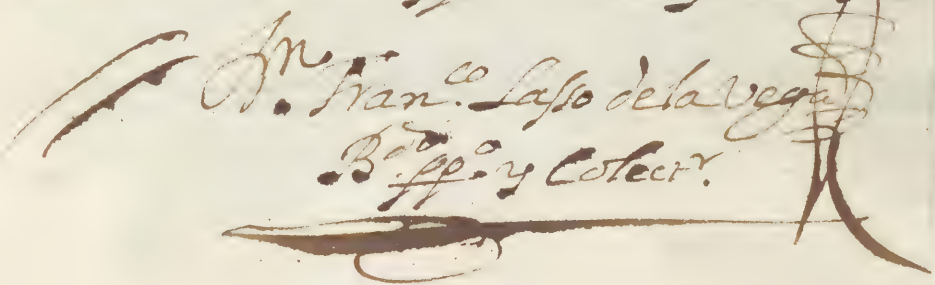 Jn. Fran.co Lasso de la Vega
B.do pp.o y Colect.r